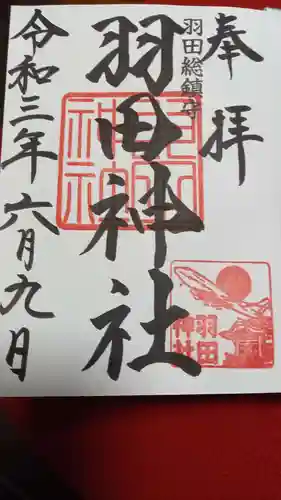 奉拝
羽田総鎮守
羽田神社
令和三年六月九日
羽田
神社